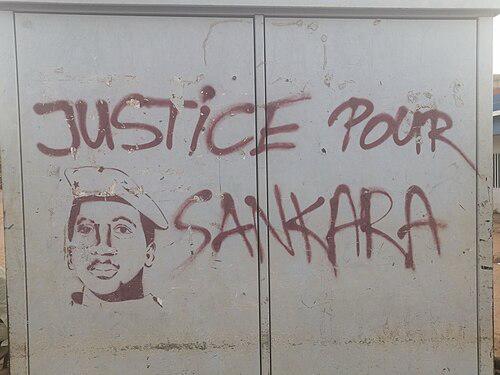 JUSTiCE POUR
SANKARA